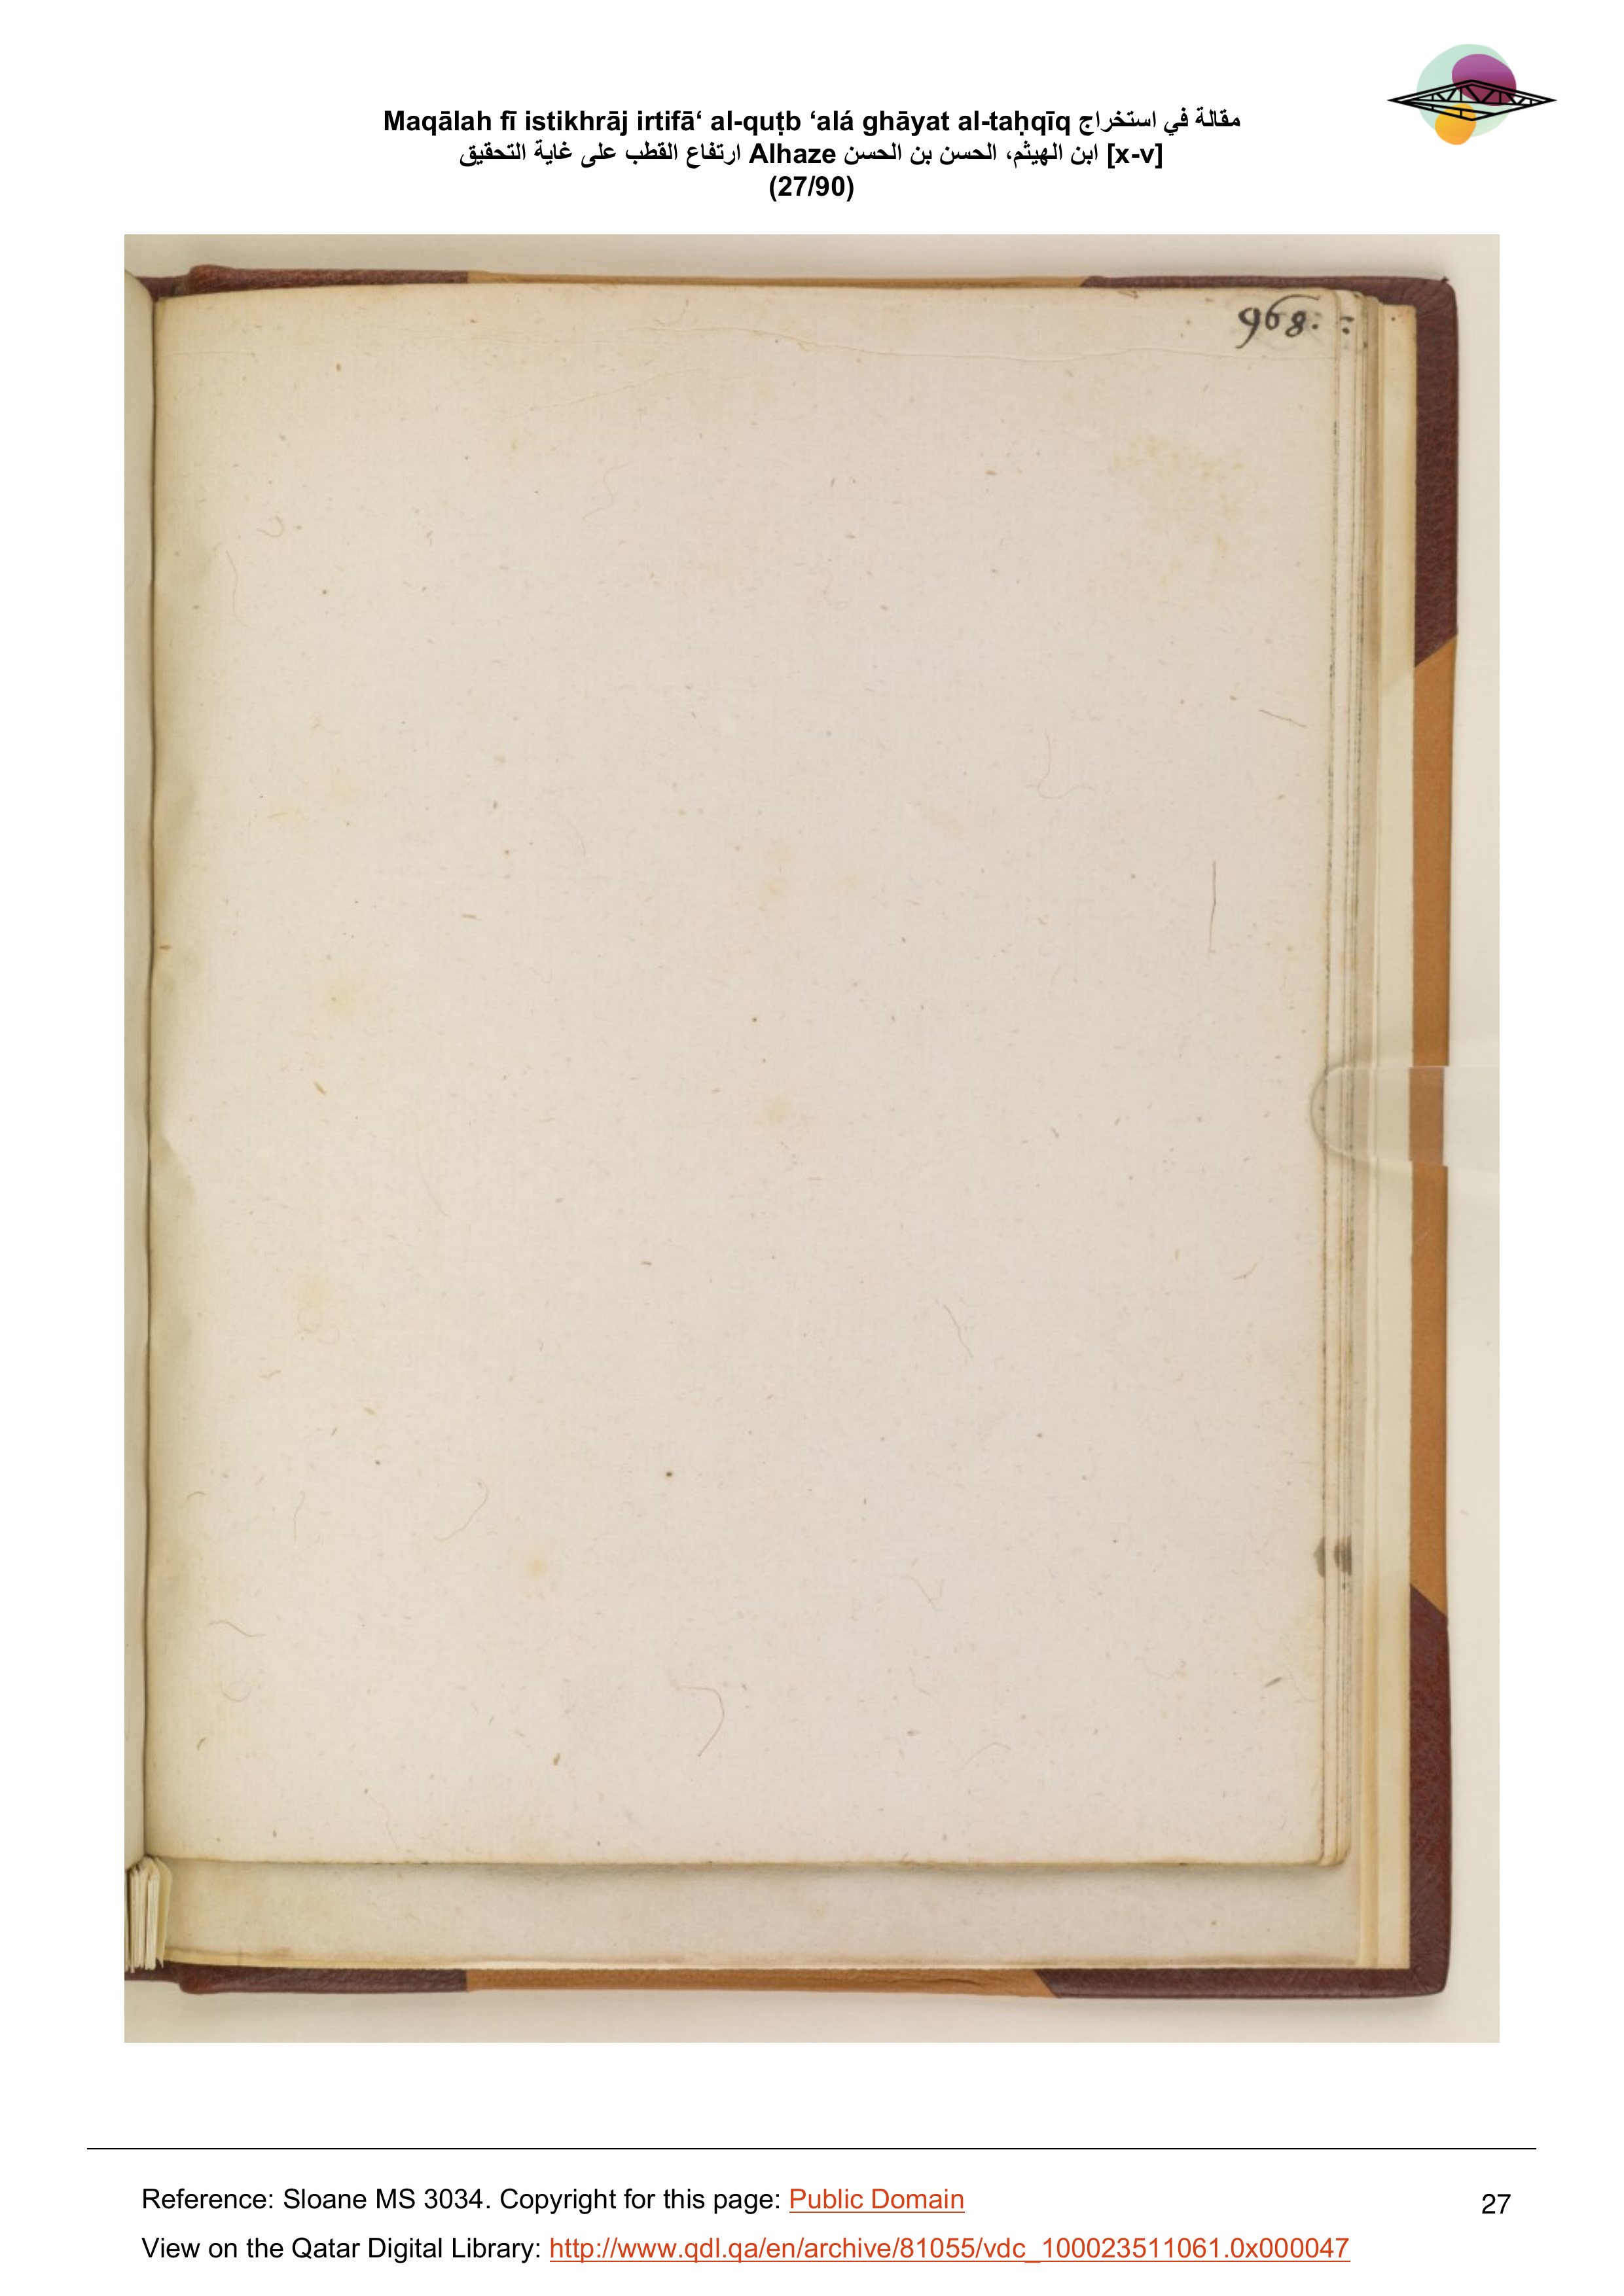 Maqālah fī istikhrāj irtifā‘ al-quṭb ‘alá ghāyat al-taḥqīq مقالة في استخراج
ارتفاع القطب على غاية التحقيق Alhaze ابن الهيثم، الحسن بن الحسن [x-v]
(27/90)
968.
Reference: Sloane MS 3034. Copyright for this page: Public Domain
27
View on the Qatar Digital Library: http://www.qdl.qa/en/archive/81055/vdc_100023511061.0x000047